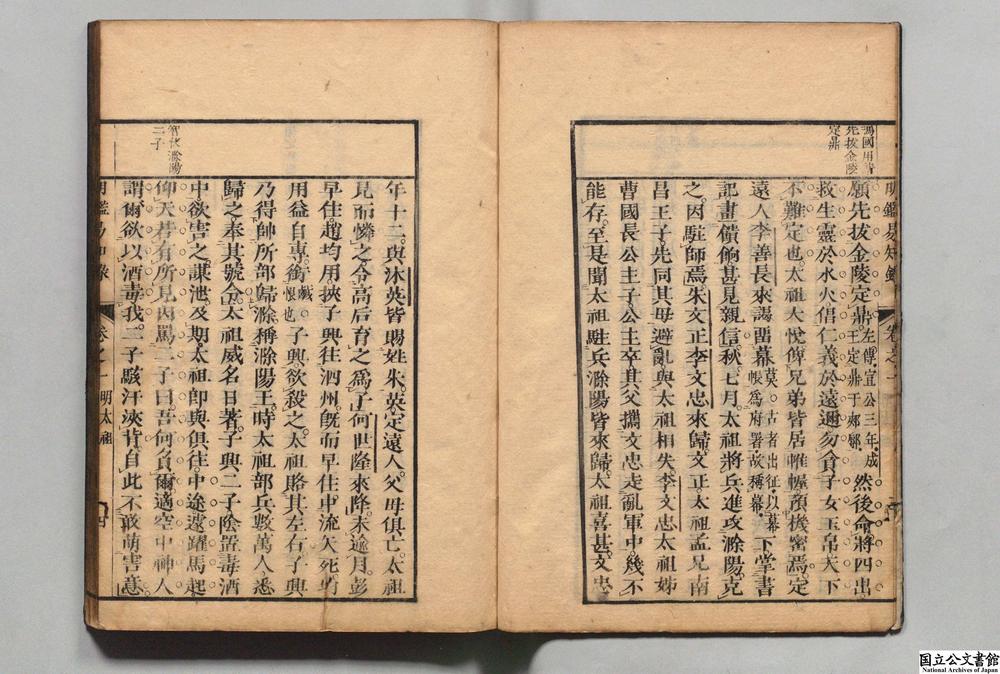 馮國用請
先拔金陵
定鼎
明鑑易知錄
卷之一
願先拔金陵定鼎左傳宣公三年成王定鼎于郟鄏然後命將四出
救生靈於水火倡仁義於遠邇勿貪子女玉帛天下
不難定也太祖大悅俾兄弟皆居帷幄預機密焉定
遠人李善長來謁畱幕莫古者出征以幕帳爲府署故稱幕下掌書
記畫饋餉甚見親信秋七月太祖將兵進攻滁陽克
之因駐師焉朱文正李文忠來歸文正太祖孟兄南
昌王子先同其母避亂與太祖相失李文忠太祖姊
曹國長公主子公主卒其父攜文忠走亂軍中幾不
能存至是聞太祖駐兵滁陽皆來歸太祖喜甚文忠
年十二與沐英皆賜姓朱英定遠人父母俱亡太祖
見而憐之令高后育之爲子何世隆來降未逾月彭
早住趙均用挾子興往泗州旣而早住中流矢死均
用益自專銜恨也子興欲殺之太祖賂其左右子興
乃得帥所部歸滁稱滁陽王時太祖部兵數萬人悉
歸之奉其號令太祖威名日著子興二子陰置毒酒
中欲害之謀泄及期太祖卽與俱往中途遽躍馬起
仰天若有所見因罵二子曰吾何負爾適空中神人
謂爾欲以酒毒我二子駭汗浹背自此不敢萌害意
滁陽
二子
明鑑易知錄
卷之一
明太祖
国立公文書館
National Archives of Japan